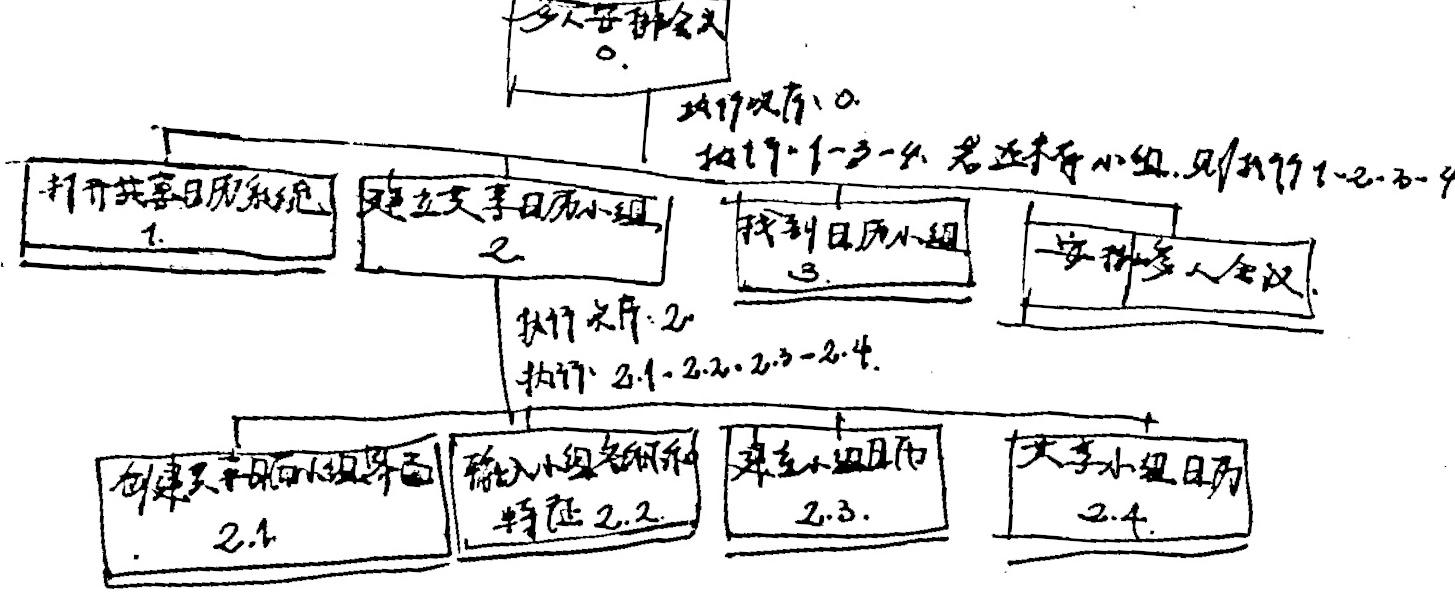 多人安排会议
0.
执行次序: 0.
执行: 1-3-4. 若还未有小组.则执行1-2-3-4
打开共享日历系统
1.
建立共享日历小组
2.
找到日历小组
3.
安排多人会议.
执行次序: 2.
执行: 2.1-2.2-2.3-2.4.
创建共享日历小组界面
2.1.
输入小组名称和
特征 2.2.
建立小组日历
2.3.
共享小组日历
2.4.